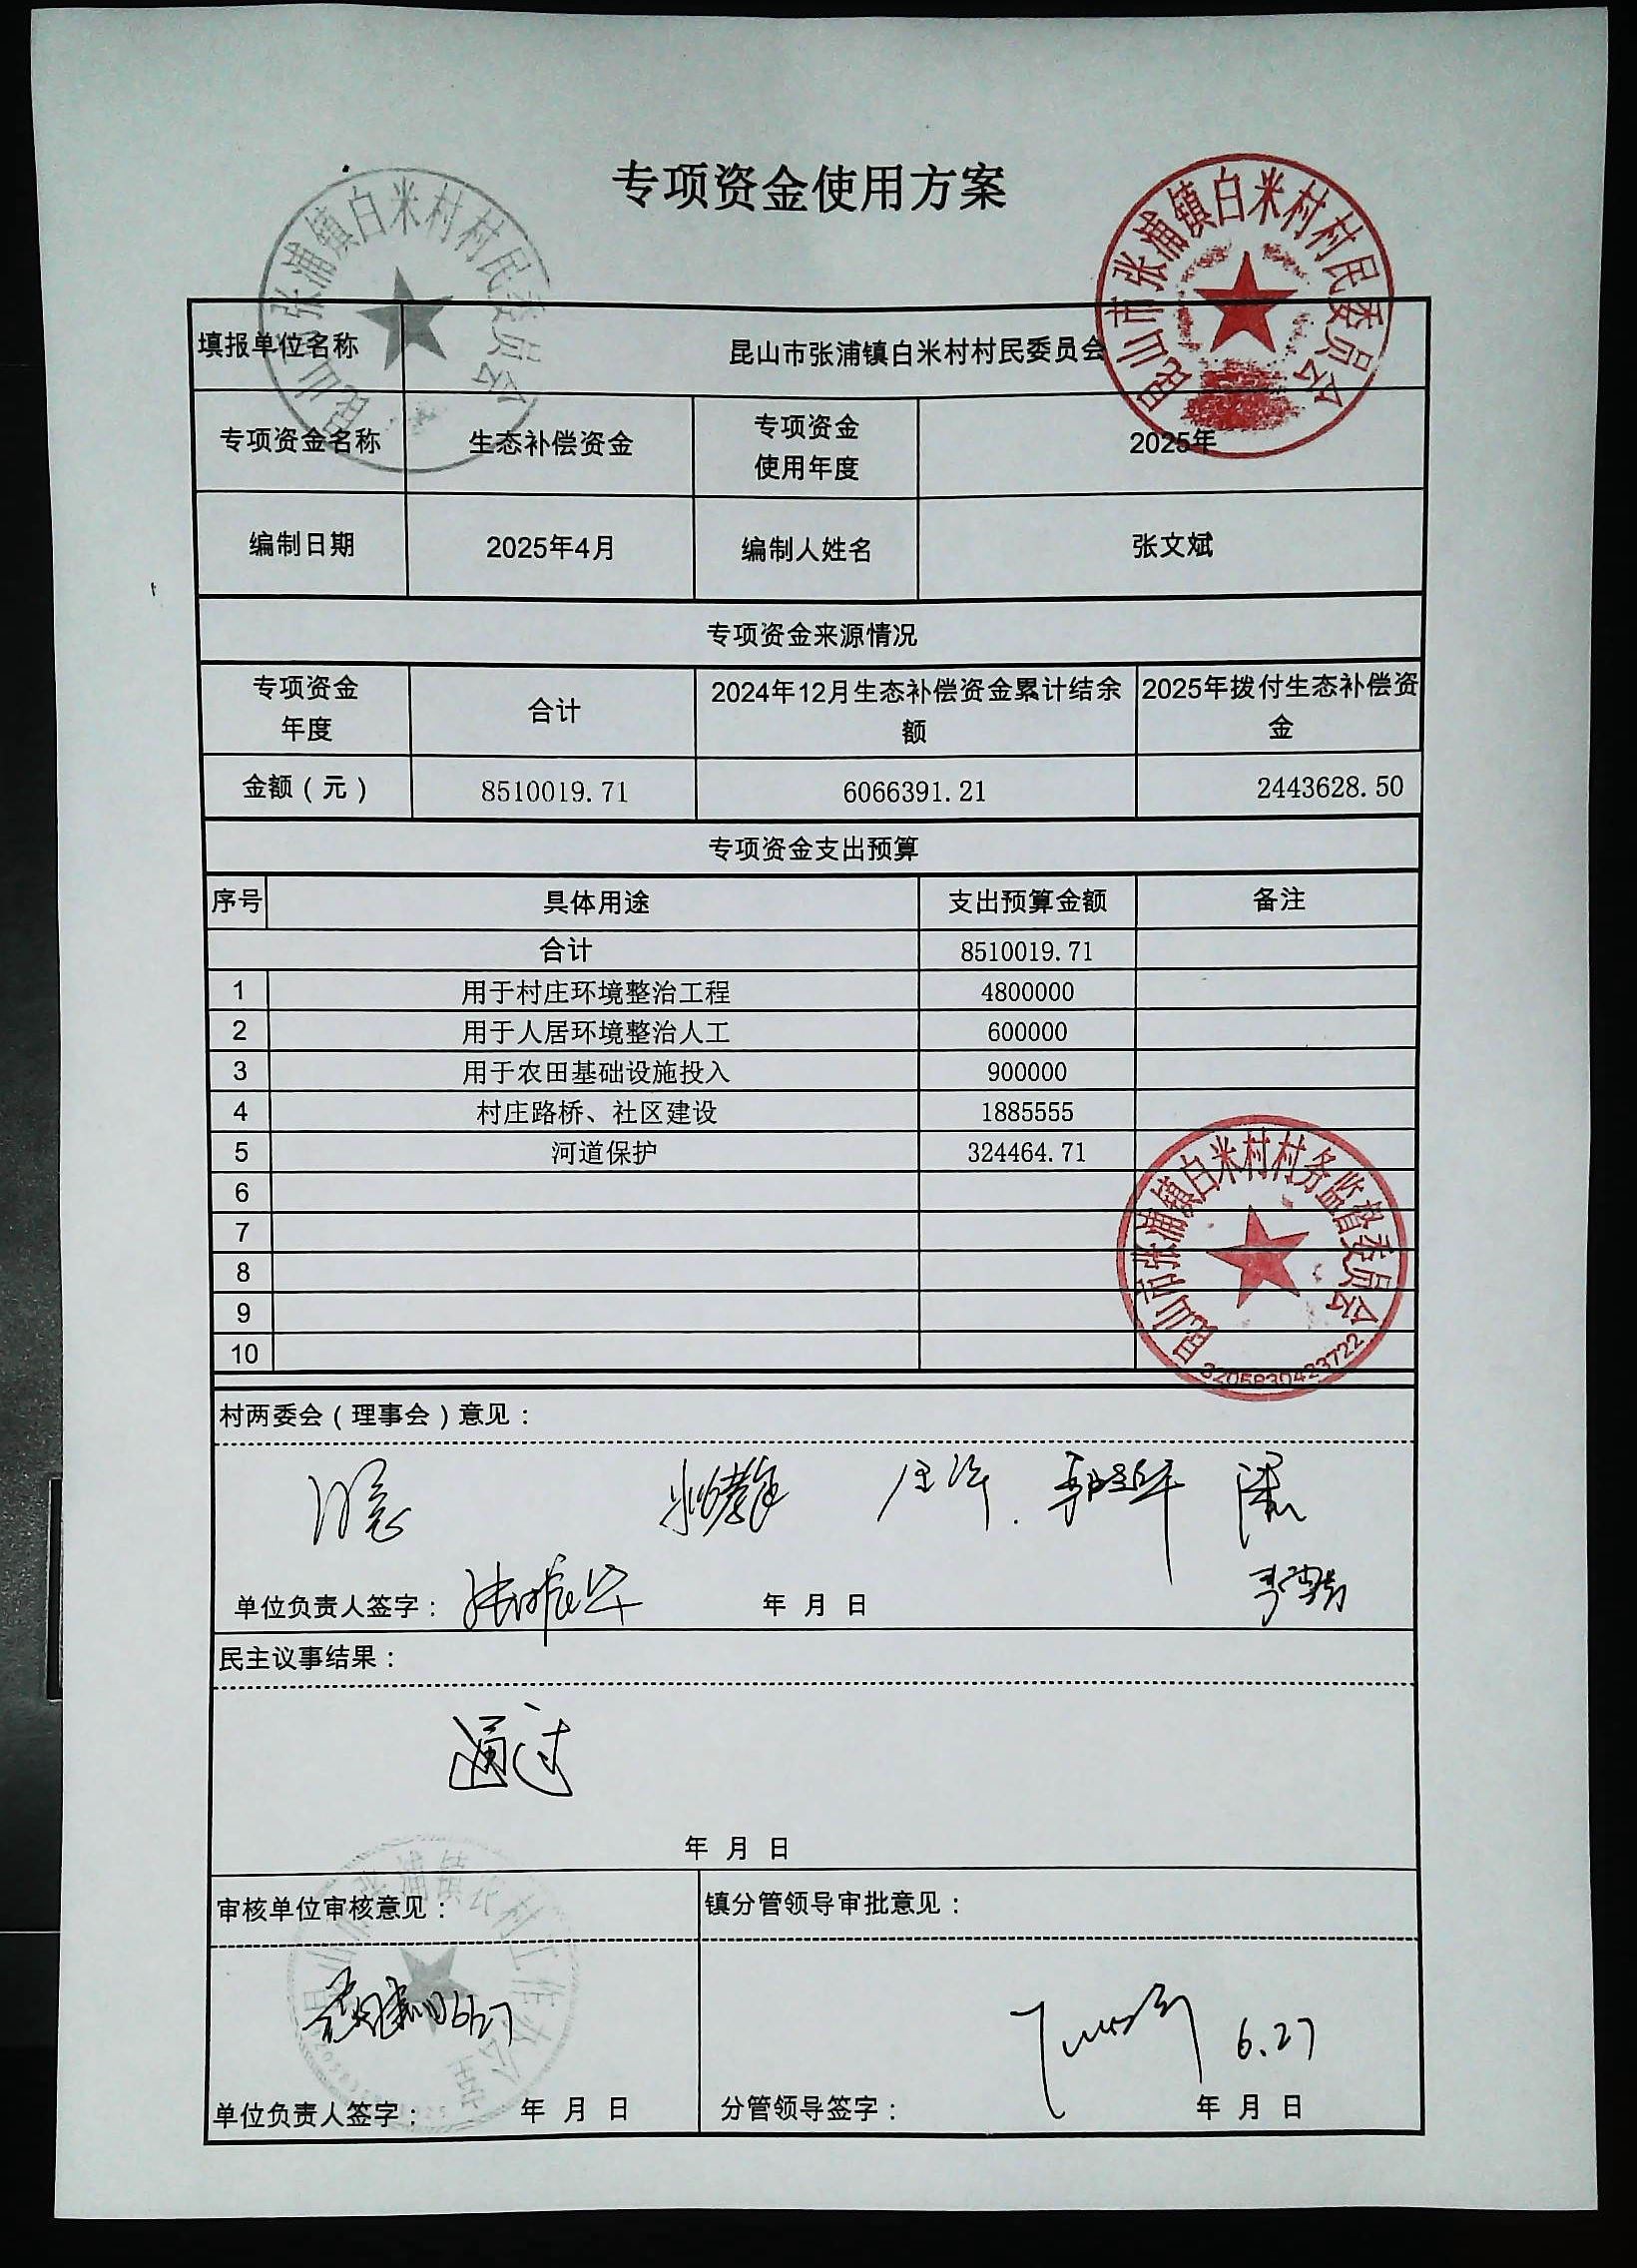 专项资金使用方案
昆山市张浦镇白米村村民委员会
昆山市张浦镇白米村村民委员会
填报单位名称 昆山市张浦镇白米村村民委员会
专项资金名称 生态补偿资金 专项资金 2025年
使用年度
编制日期 2025年4月 编制人姓名 张文斌
专项资金来源情况
专项资金 合计 2024年12月生态补偿资金累计结余 2025年拨付生态补偿资
年度 额 金
金额(元) 8510019.71 6066391.21 2443628.50
专项资金支出预算
序号 具体用途 支出预算金额 备注
合计 8510019.71
1 用于村庄环境整治工程 4800000
2 用于人居环境整治人工 600000
3 用于农田基础设施投入 900000
4 村庄路桥、社区建设 1885555
5 河道保护 324464.71
6
7
8
9
10
昆山市张浦镇白米村村务监督委员会
3205830423722
村两委会(理事会)意见:
同意
单位负责人签字: 年 月 日
民主议事结果:
通过
年 月 日
审核单位审核意见: 镇分管领导审批意见:
6/27
6.27
单位负责人签字: 年 月 日 分管领导签字: 年 月 日